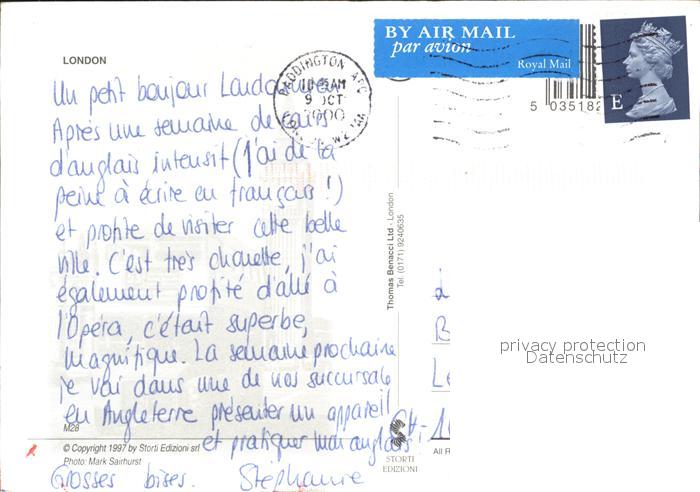 LONDON
BY AIR MAIL
par avion
Royal Mail
PADDINGTON
9 OCT
5 035182
E
Un petit bonjour Londonnien
Après une semaine de cours
d'anglais intensif (j'ai de la
peine à écrire en français !)
et profite de visiter cette belle
ville. C'est très chouette, j'ai
également profité d'allé à
l'Opéra, c'était superbe,
magnifique. La semaine prochaine
je vai dans une de nos succursale
en Angleterre présenter un appareil
et pratiquer mon anglais
Grosses bises. Stéphanie
M28
© Copyright 1997 by Storti Edizioni srl
Photo: Mark Sairhurst
Thomas Benacci Ltd - London
Tel. (0171) 9240635
STORTI
EDIZIONI
à
B
Le
CH-1
All R
privacy protection
Datenschutz